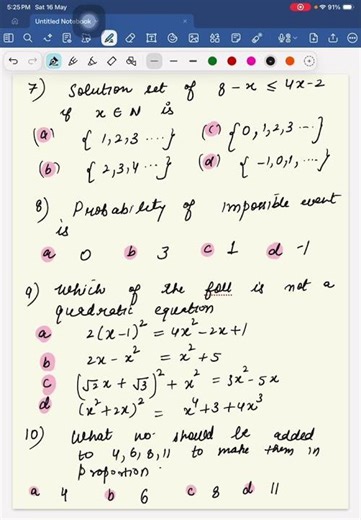 5:25 PM Sat 16 May
91%
Untitled Notebook
7) Solution set of 8 - x ≤ 4x - 2
if x ∈ N is
(a) { 1, 2, 3 ....} (c) {0, 1, 2, 3 ...}
(b) { 2, 3, 4 ...} (d) { -1, 0, 1, ...}
8) Probability of impossible event
is
a 0 b 3 c 1 d -1
9) Which of the foll is not a
quadratic equation
a 2(x-1)² = 4x² - 2x + 1
b 2x - x² = x² + 5
c (√2 x + √3)² + x² = 3x² - 5x
d (x² + 2x)² = x⁴ + 3 + 4x³
10) What no. should be added
to 4, 6, 8, 11 to make them in
proportion.
a 4 b 6 c 8 d 11